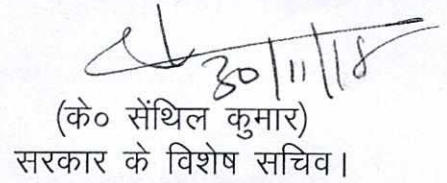 30/11/18
(के० सेंथिल कुमार)
सरकार के विशेष सचिव।